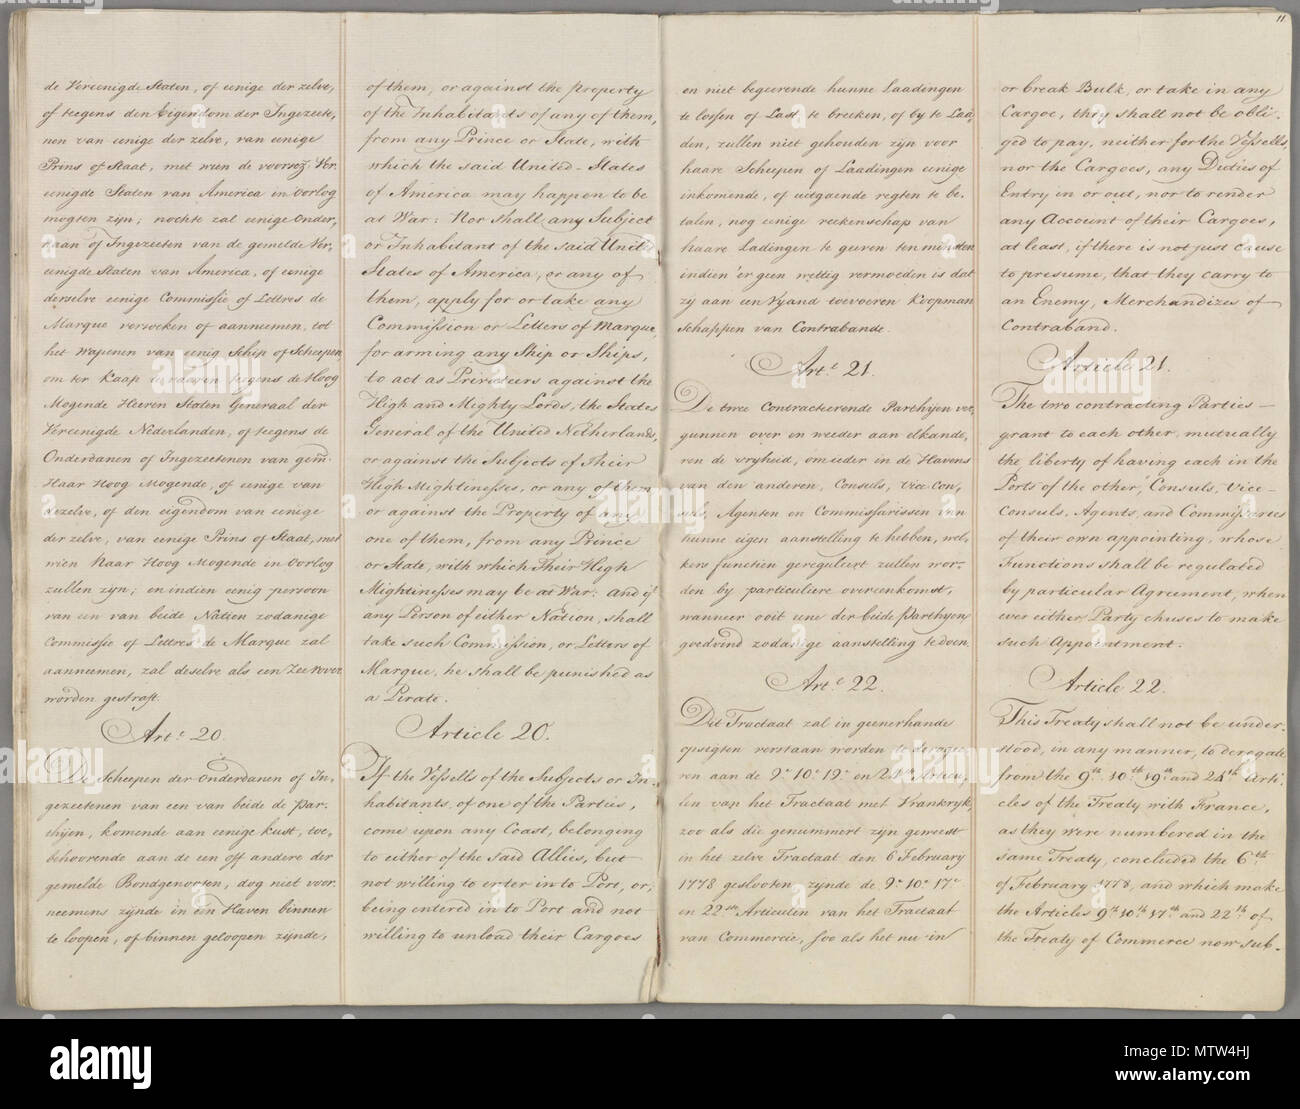 11
de Vereenigde Staten, of eenige der zelve,
of teegens den Eigendom der Ingezeete,
nen van eenige der zelve, van eenige
Prins of Staat, met wien de voorsz: Ver,
eenigde Staten van America in Oorlog
mogten zijn; nochte zal eenige Onder,
daan of Ingezeeten van de gemelde Ver,
eenigde Staten van America, of eenige
derselve eenige Commissie of Lettres de
Marque versoeken of aanneemen, tot
het wapenen van eenig Schip of Scheepen,
om ter Kaap te vaaren teegens de Hoog
Mogende Heeren Staten Generaal der
Vereenigde Nederlanden, of teegens de
Onderdanen of Ingezeetenen van gem:
Haar Hoog Mogende, of eenige van
dezelve, of den eigendom van eenige
der zelve, van eenige Prins of Staat, met
wien Haar Hoog Mogende in Oorlog
zullen zijn; en indien eenig persoon
van een van beide Natien zodanige
Commissie of Lettres de Marque zal
aanneemen, zal deselve als een Zeerover
worden gestraft.
Art: 20.
De Scheepen der Onderdanen of In,
gezeetenen van een van beide de par,
thijen, komende aan eenige kust, toe,
behoorende aan de een off andere der
gemelde Bondgenooten, dog niet voor,
neemens zijnde in een Haven binnen
te loopen, of binnen geloopen zijnde,
of them, or against the property
of the Inhabitants of any of them,
from any Prince or State, with
which the said United-States
of America may happen to be
at War: Nor shall any Subject
or Inhabitant of the said United
States of America, or any of
them, apply for or take any
Commission or Letters of Marque,
for arming any Ship or Ships,
to act as Privateers against the
High and Mighty Lords, the States
General of the United Netherlands,
or against the Subjects of Their
High Mightinesses, or any of them
or against the Property of any
one of them, from any Prince
or State, with which Their High
Mightinesses may be at War: and if
any Person of either Nation, shall
take such Commission, or Letters of
Marque, he shall be punished as
a Pirate.
Article 20.
If the Vessells of the Subjects or In-
habitants, of one of the Parties,
come upon any Coast, belonging
to either of the said Allies, but
not willing to enter in to Port, or,
being entered in to Port and not
willing to unload their Cargoes
en niet begeerende hunne Laadingen
te lossen of Last te breeken, of by te Laa,
den, zullen niet gehouden zijn voor
haare Scheepen of Laadingen eenige
inkomende, of uitgaende regten te be,
talen, nog eenige reekenschap van
haare Ladingen te geeven ten minsten
indien 'er geen wettig vermoeden is dat
zy aan een Vyand toevoeren Koopman
schappen van Contrabande.
Art: 21.
De twee Contracteerende Parthijen ver,
gunnen over en weeder aan elkande,
ren de vryheid, om ieder in de Havens
van den anderen, Consuls, Vice Con,
suls, Agenten en Commissarissen van
hunne eigen aanstelling te hebben, wel,
kers functien gereguleert zullen wor,
den by particuliere overeenkomst,
wanneer ooit eene der beide Parthyen
goedvind zodanige aanstelling te doen.
Art: 22.
Dit Tractaat zal in geenerhande
opsigten verstaan worden te derogee,
ren aan de 9e 10e 19e en 24ste Articu,
len van het Tractaat met Vrankryk,
zoo als die genummert zijn geweest
in het zelve Tractaat den 6 February
1778 geslooten, zynde de 9e 10e 17e
en 22ste Articulen van het Tractaat
van Commercie, soo als het nu in
or break Bulk, or take in any
Cargoe, they shall not be obli-
ged to pay, neither for the Vessells,
nor the Cargoes, any Duties of
Entry in or out, nor to render
any Account of their Cargoes,
at least, if there is not just cause
to presume, that they carry to
an Enemy, Merchandizes of
Contraband.
Article 21.
The two contracting Parties—
grant to each other, mutually
the liberty of having each in the
Ports of the other, Consuls, Vice-
Consuls, Agents, and Commissaries
of their own appointing, whose
Functions shall be regulated
by particular Agreement, when
ever either Party chuses to make
such Appointment.
Article 22.
This Treaty shall not be under-
stood, in any manner, to derogate
from the 9th 10th 19th and 24th Arti-
cles of the Treaty with France,
as they were numbered in the
same Treaty, concluded the 6th
of February 1778, and which make
the Articles 9th 10th 17th and 22th of
the Treaty of Commerce now sub-
alamy
Image ID: MTW4HJ
www.alamy.com